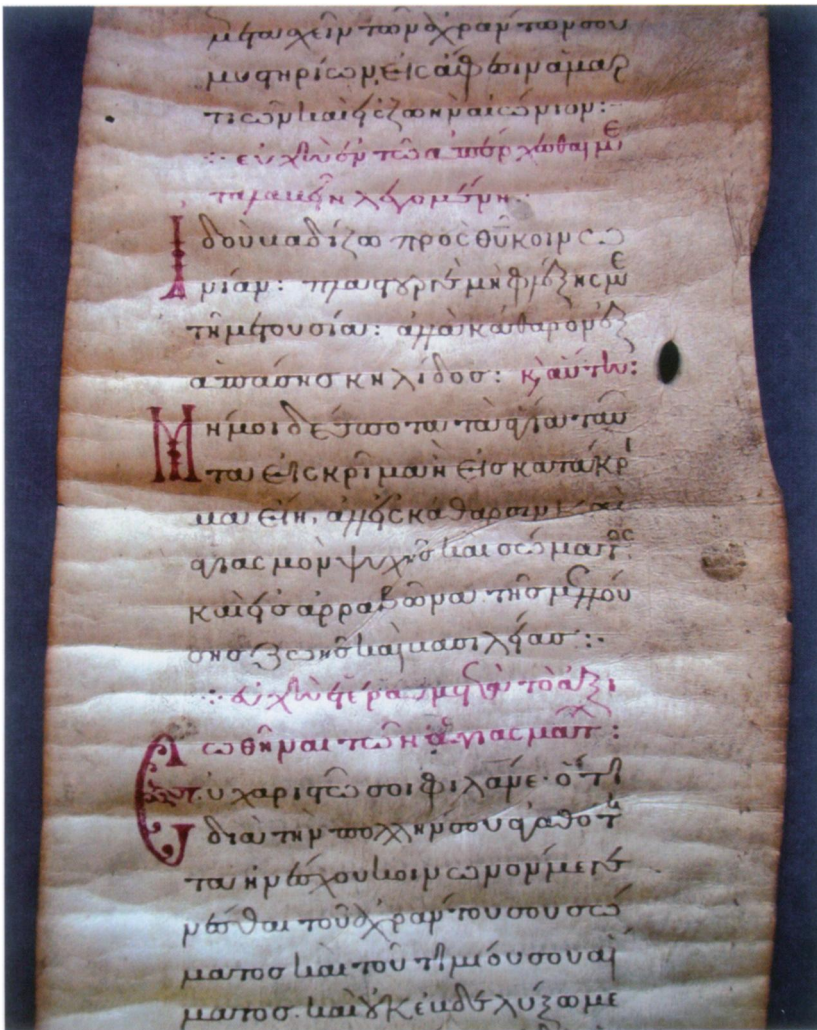 μετασχεῖν τῶν ἀχράντων σου
μυστηρίων, εἰς ἄφεσιν ἁμαρ
τιῶν καὶ εἰς ζωὴν αἰώνιον:
εὐχὴ ἐν τῶ ἀπέρχεσθαι με
λεγομένη
Ἰδοὺ βαδίζω πρὸς θυ κοινω
νίαν: πλαστουργὲ μὴ φλέξης με
τῆ μετουσία: ἀλλὰ κάθαρόν με ἐξ
ἁπάσης κηλίδος: κ αὕτη:
Μή μοι δέσποτα τὰ ἅγια ταῦ
τα εἰς κρῖμα ἢ εἰς κατάκρι
μα εἴη, ἀλλ' εἰς κάθαρσιν καὶ
ἁγιασμὸν ψυχῆς καὶ σώματος
καὶ εἰς ἀρραβῶνα τῆς μελλού
σης ζωῆς καὶ βασιλείας:
εὐχὴ ἑτέρα μετὰ τὸ ἀξι
ωθῆναι τῶν ἁγιασμάτ:
Εὐχαριστῶ σοι φιλάνε· ὅτι
διὰ τὴν πολλήν σου ἀγαθότη
τα ἠνέσχου κοινωνόν με γε
νέσθαι τοῦ ἀχράντου σου σώ
ματος καὶ τοῦ τιμίου σου αἵ
ματος. καὶ οὐκ ἐβδελύξω με